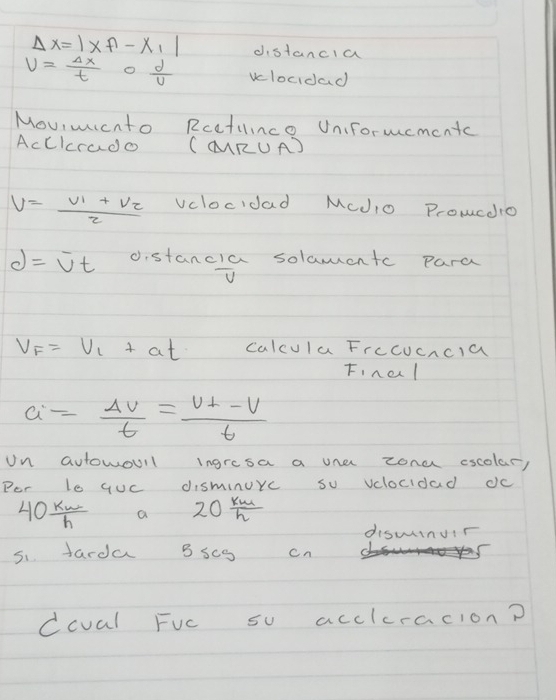 Δx=|xf-xi| distancia
v= Δx/t o d/v velocidad
Movimiento Rectilineo Uniformemente
Acelerado (MRUA)
v= v1 + v2 / 2 velocidad Medio Promedio
d= v̄t distancia solamente para
v̄
VF= Vi + at calcula Frecuencia
Final
a= Δv/t = Vt-V / t
un automovil ingresa a una zona escolar,
Por lo que disminuye su velocidad de
40 Km/h a 20 Km/h
si tarda 5 seg en disminuir
¿cual Fue su aceleracion?